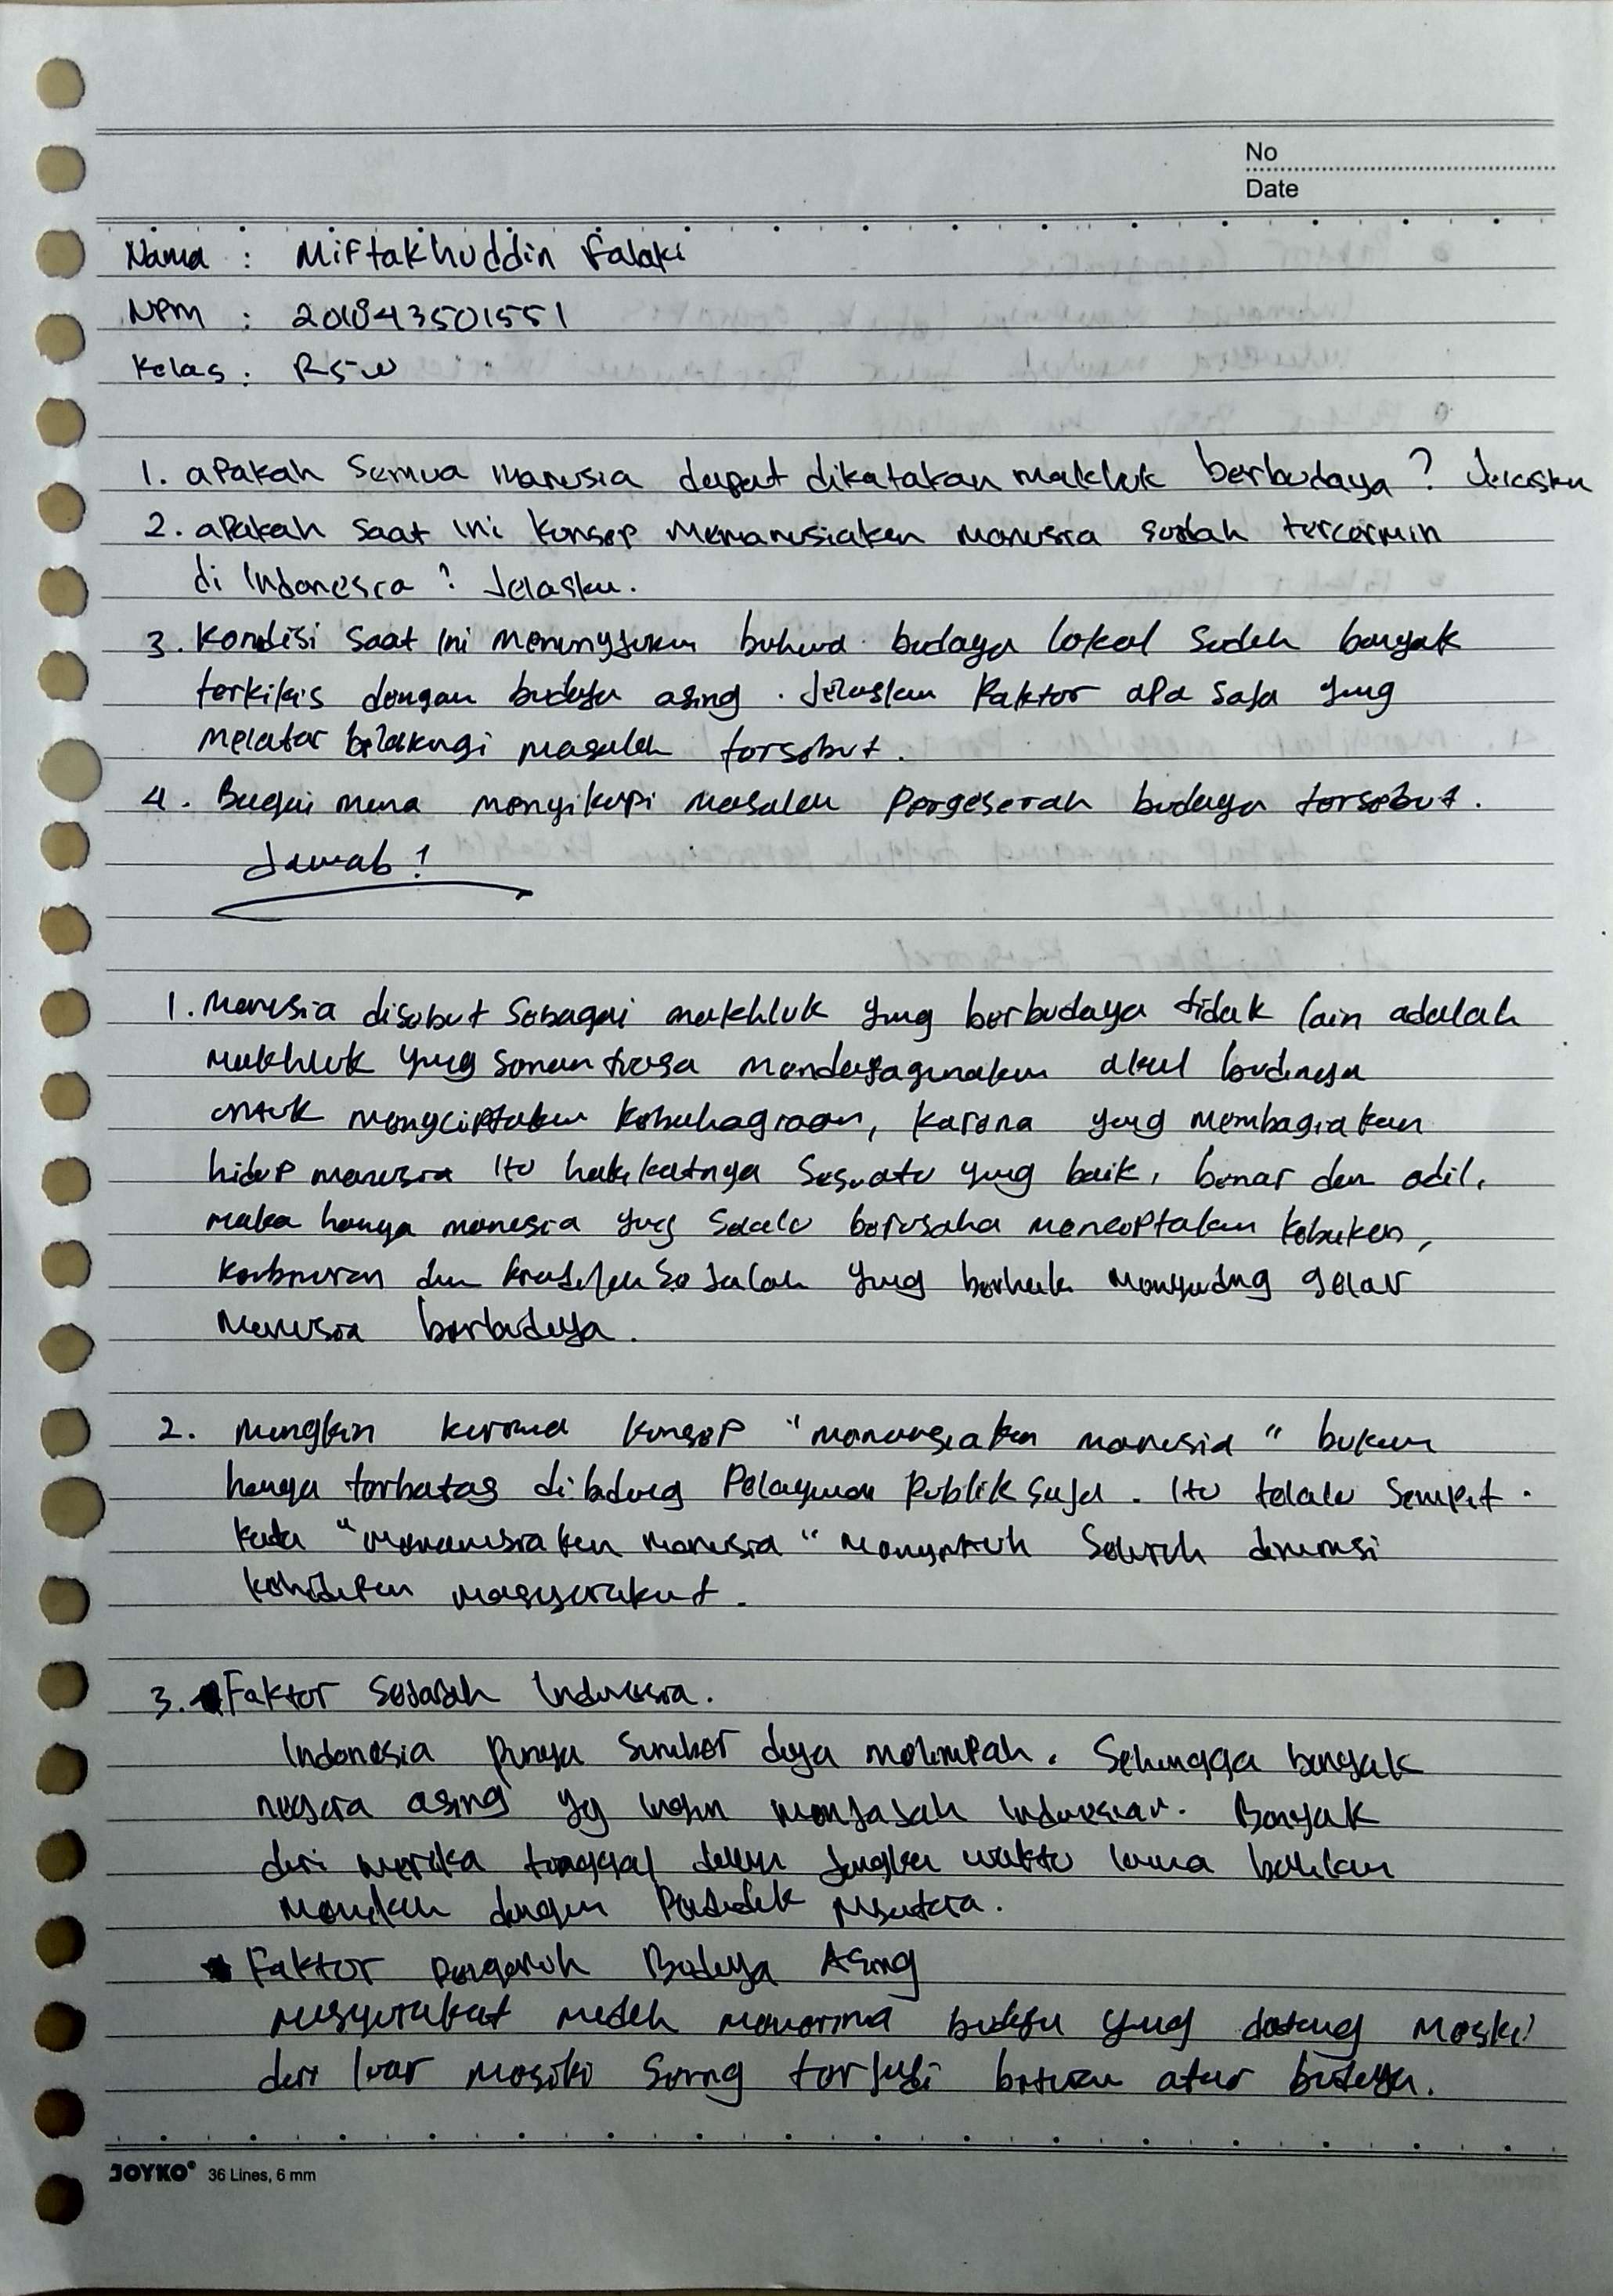 No
Date
Nama : Miftakhuddin Falaki
NPM : 201843501551
Kelas : R5W
1. apakah semua manusia dapat dikatakan makhluk berbudaya ? Jelaskn
2. apakah saat ini konsep memanusiakan manusia sudah tercermin
di Indonesia ? Jelaskn.
3. Kondisi saat ini menunjukan bahwa budaya lokal sudah banyak
terkikis dengan budaya asing . Jelaskan Faktor apa saja yang
melatar belakangi masalah tersebut.
4. Bagai mana menyikapi masalah pergeseran budaya tersebut.
Jawab !
1. Manusia disebut sebagai makhluk yang berbudaya tidak lain adalah
makhluk yang senantiasa mendayagunakan akal budinya
untuk menciptakan kebahagiaan, karena yang membagiakan
hidup manusia itu hakikatnya sesuatu yang baik, benar dan adil,
maka hanya manusia yang selalu berusaha menciptakan kebaikan,
dan yang berhak menyandang gelar
manusia berbudaya.
2. Mungkin karena konsep "memanusiakan manusia" bukan
hanya terbatas dibidang Pelayanan Publik saja. Itu telalu sempit.
kata "memanusiakan manusia" menyentuh seluruh dimensi
kehidupan masyarakat.
3. Faktor sejarah Indonesia.
Indonesia punya sumber daya melimpah. Sehingga banyak
negara asing yg ingin menjajah Indonesia. Banyak
dari mereka tinggal dalam jangka waktu lama bahkan
menikah dengan Penduduk Nusantara.
Faktor pengaruh Budaya Asing
masyarakat mudah menerima budaya yang datang meski
dari luar meski sering terjadi benturan antar budaya.
JOYKO® 36 Lines, 6 mm